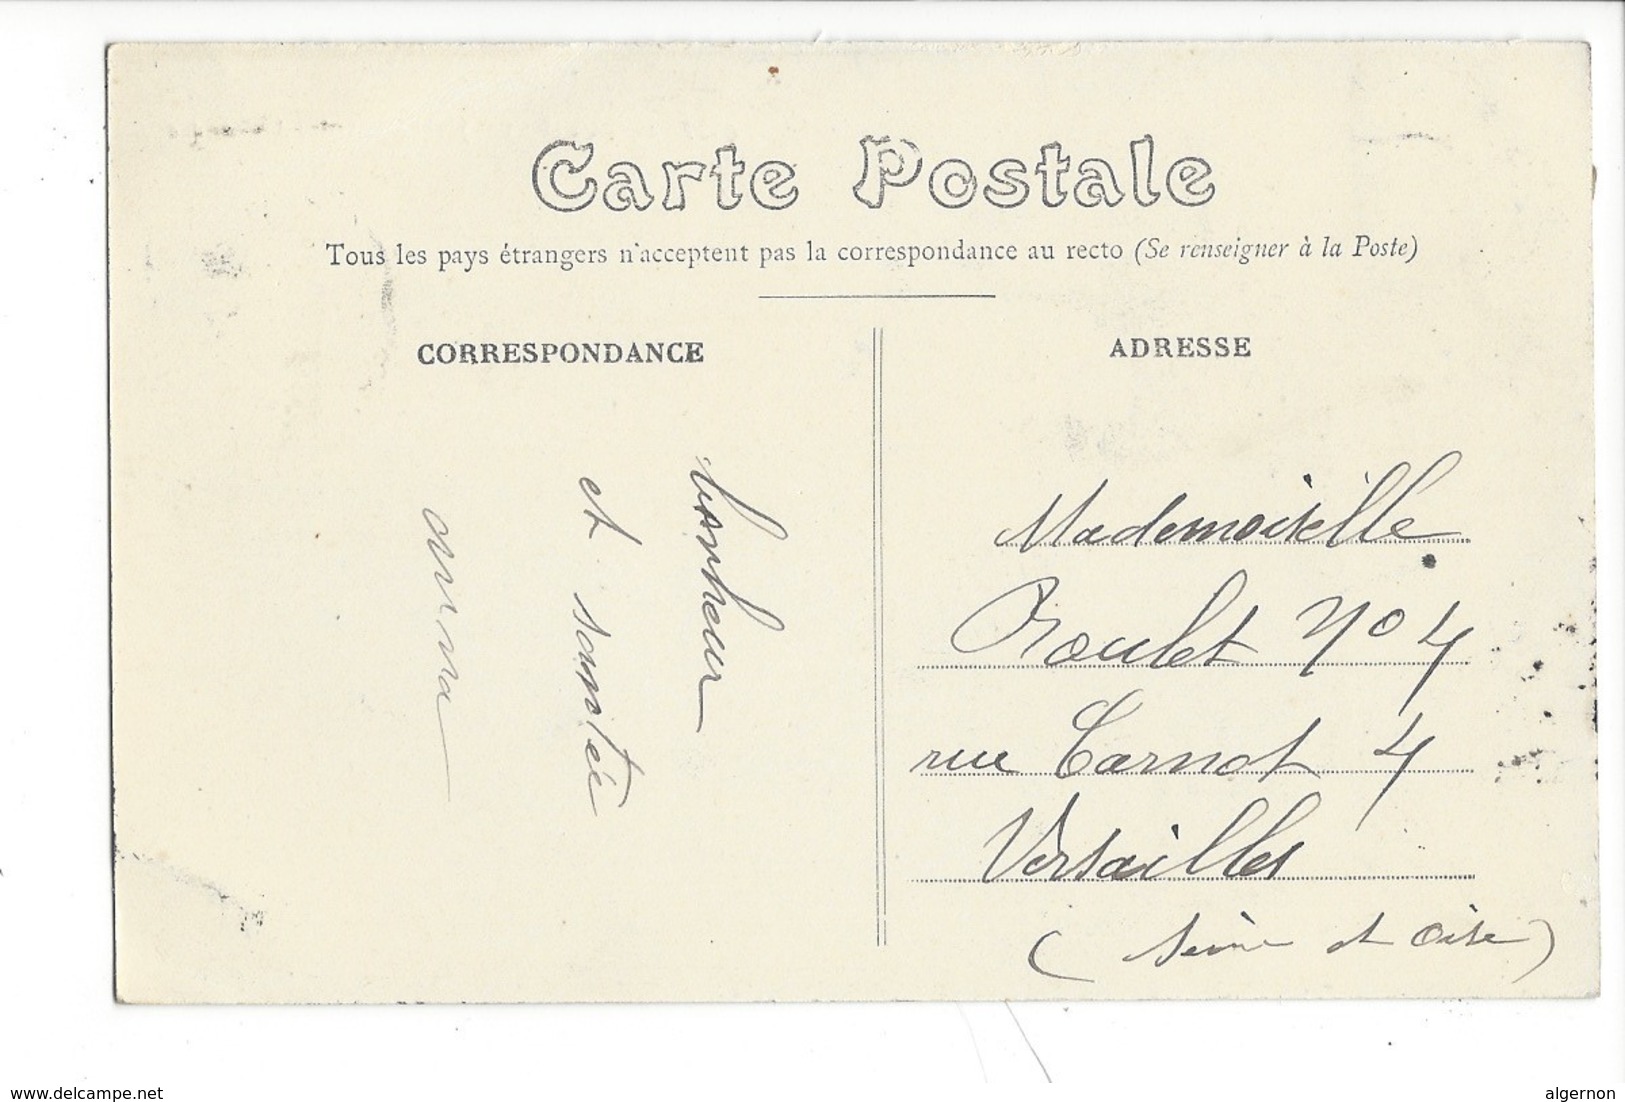 Carte Postale
Tous les pays étrangers n'acceptent pas la correspondance au recto (Se renseigner à la Poste)
CORRESPONDANCE
bonheur
et santée
anna
ADRESSE
Mademoiselle
Roulet No 4
rue Carnot 4
Versailles
(Seine et Oise)
www.delcampe.net
algernon